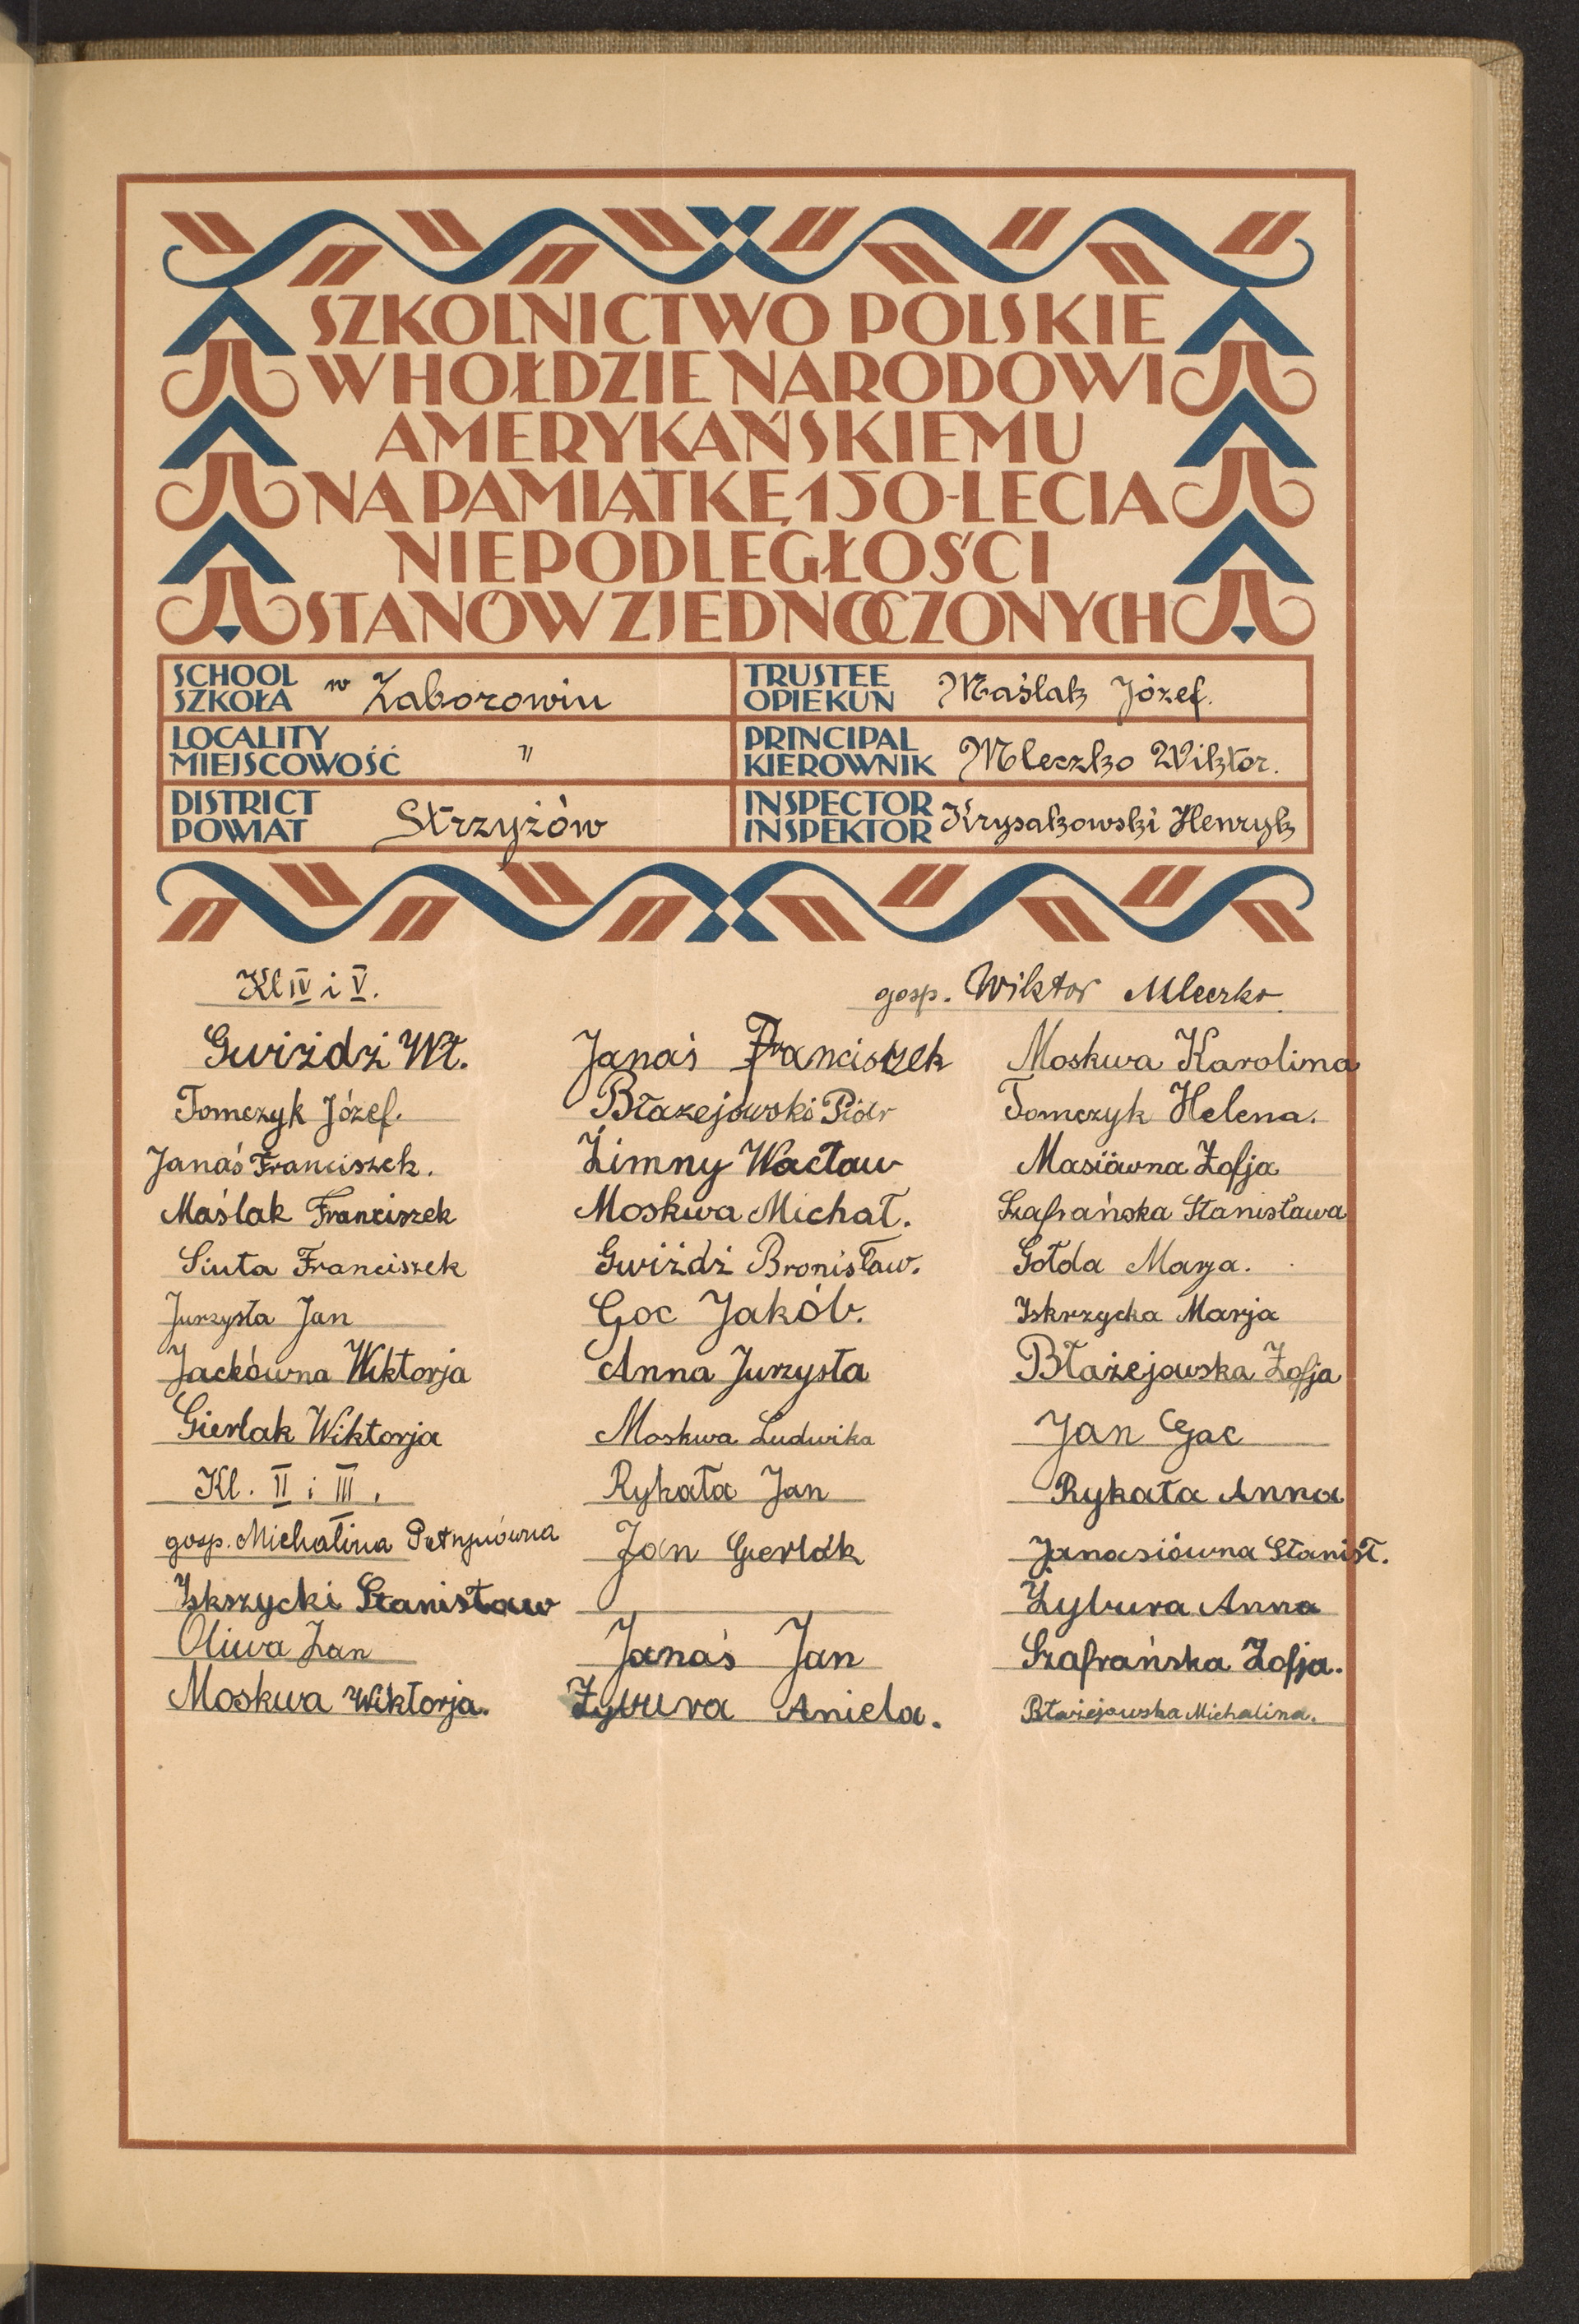 SZKOLNICTWO POLSKIE
W HOŁDZIE NARODOWI
AMERYKAŃSKIEMU
NA PAMIĄTKĘ 150-LECIA
NIEPODLEGŁOŚCI
STANÓW ZJEDNOCZONYCH
SCHOOL
SZKOŁA
w Zaborowiu
TRUSTEE
OPIEKUN
Maślak Józef.
LOCALITY
MIEJSCOWOŚĆ
"
PRINCIPAL
KIEROWNIK
Mleczko Wiktor.
DISTRICT
POWIAT
Strzyżów
INSPECTOR
INSPEKTOR
Krysakowski Henryk
Kl IV i V.
gosp. Wiktor Mleczko
Gwiżdż Wł.
Janaś Franciszek
Moskwa Karolina
Tomczyk Józef.
Błazejowski Piotr
Tomczyk Helena.
Janaś Franciszek.
Zimny Wacław
Masiówna Zofja
Maślak Franciszek
Moskwa Michał.
Szafrańska Stanisława
Siuta Franciszek
Gwiżdż Bronisław.
Gołda Marja.
Jurzysta Jan
Goc Jakób.
Iskrzycka Marja
Jackówna Wiktorja
Anna Jurzysta
Błażejowska Zofja
Gierlak Wiktorja
Moskwa Ludwika
Jan Gac
Kl. II i III.
Rykała Jan
Rykała Anna
gosp. Michalina
Jan Gierlak
Janasiówna Stanisł.
Iskszycki Stanisław
Zybura Anna
Oliwa Jan
Janaś Jan
Szafrańska Zofja.
Moskwa Wiktorja.
Zybura Aniela.
Błażejowska Michalina.